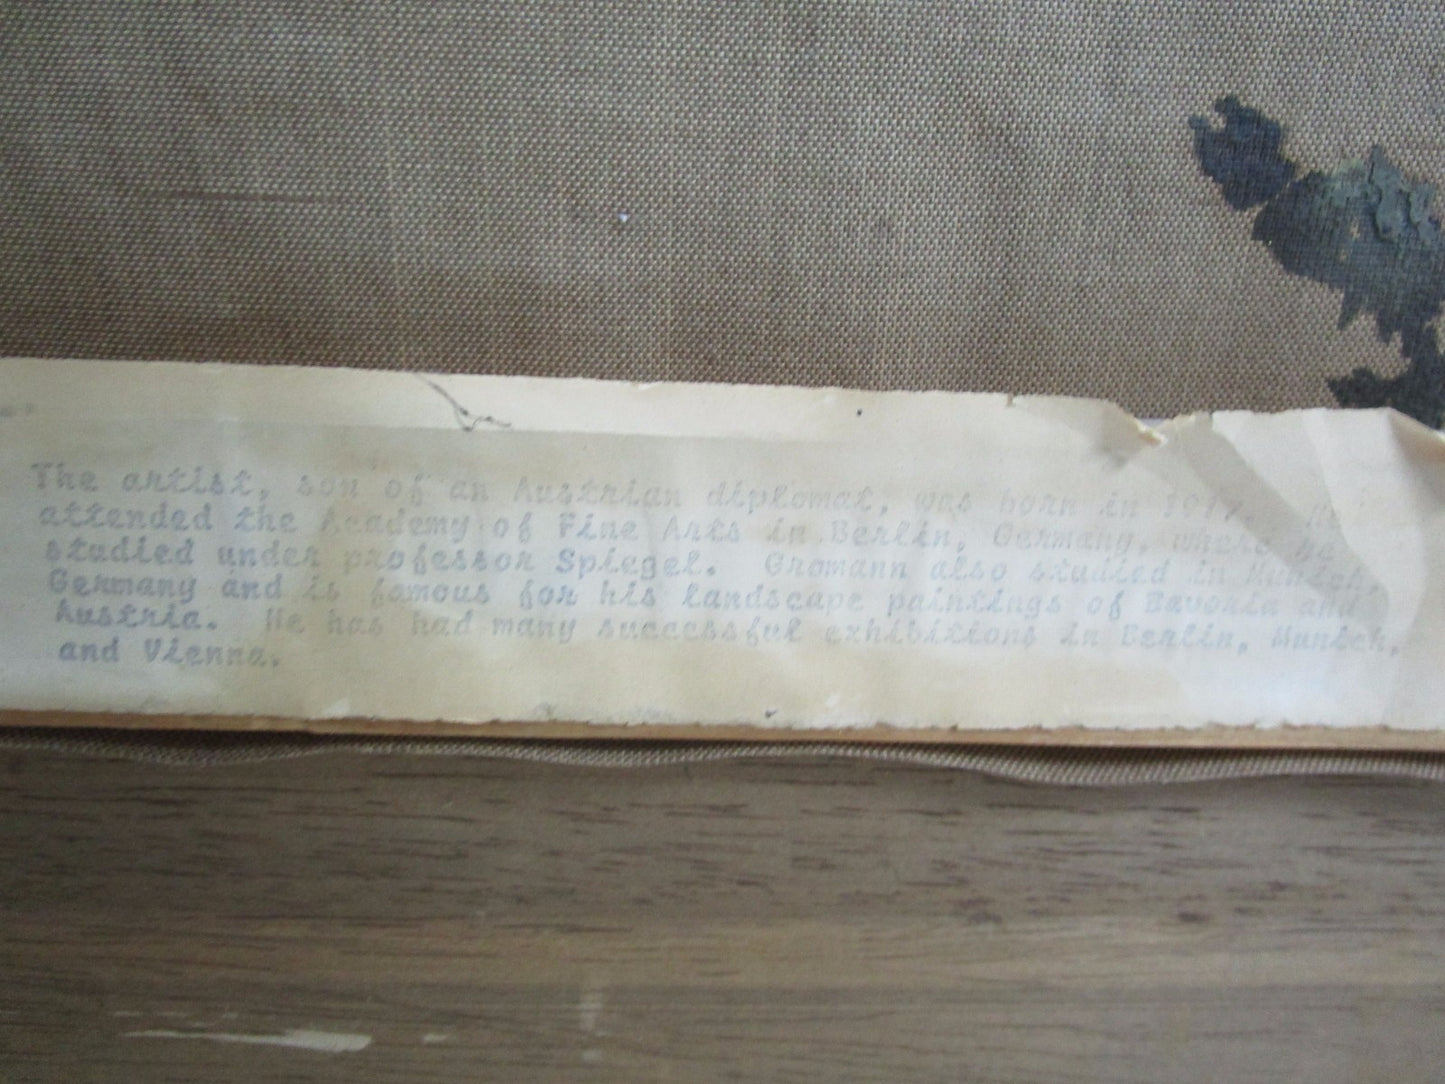 The artist, son of an Austrian diplomat, was born in 1917. He
attended the Academy of Fine Arts in Berlin, Germany, where he
studied under professor Spiegel. Gromann also studied in Munich,
Germany and is famous for his landscape paintings of Bavaria and
Austria. He has had many successful exhibitions in Berlin, Munich,
and Vienna.